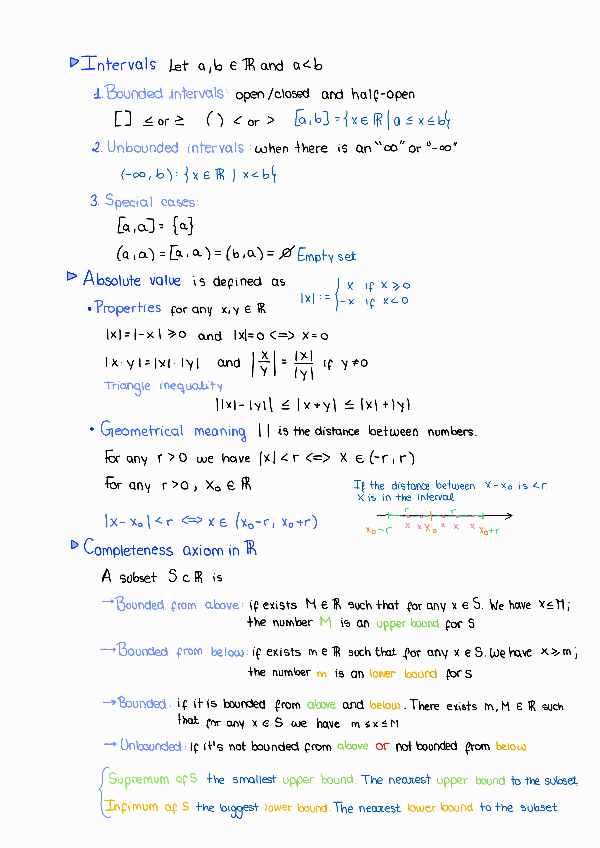 ▷ Intervals Let a,b ∈ ℝ and a<b
1. Bounded intervals: open/closed and half-open
[ ] ≤ or ≥ ( ) < or > [a,b] = {x ∈ ℝ | a ≤ x ≤ b}
2. Unbounded intervals: when there is an "∞" or "-∞"
(-∞, b): {x ∈ ℝ | x < b}
3. Special cases:
[a,a] = {a}
(a,a) = [a,a) = (b,a) = ∅ Empty set
▷ Absolute value is defined as
|x| := { x if x ≥ 0
-x if x < 0
• Properties for any x,y ∈ ℝ
|x| = |-x| ≥ 0 and |x| = 0 <=> x = 0
|x·y| = |x|·|y| and |x/y| = |x|/|y| if y ≠ 0
Triangle inequality
||x|-|y|| ≤ |x+y| ≤ |x|+|y|
• Geometrical meaning | | is the distance between numbers.
For any r > 0 we have |x| < r <=> x ∈ (-r, r)
For any r > 0, x₀ ∈ ℝ
If the distance between x-x₀ is < r
x is in the interval
r r
x₀-r x x x₀ x x x x₀+r
|x-x₀| < r <=> x ∈ (x₀-r, x₀+r)
▷ Completeness axiom in ℝ
A subset S ⊂ ℝ is
→ Bounded from above: if exists M ∈ ℝ such that for any x ∈ S. We have x ≤ M;
the number M is an upper bound for S
→ Bounded from below: if exists m ∈ ℝ such that for any x ∈ S. We have x ≥ m;
the number m is an lower bound for S
→ Bounded: if it is bounded from above and below. There exists m, M ∈ ℝ such
that for any x ∈ S we have m ≤ x ≤ M
→ Unbounded: if it's not bounded from above or not bounded from below
Supremum of S the smallest upper bound. The nearest upper bound to the subset.
Infimum of S the biggest lower bound. The nearest lower bound to the subset.